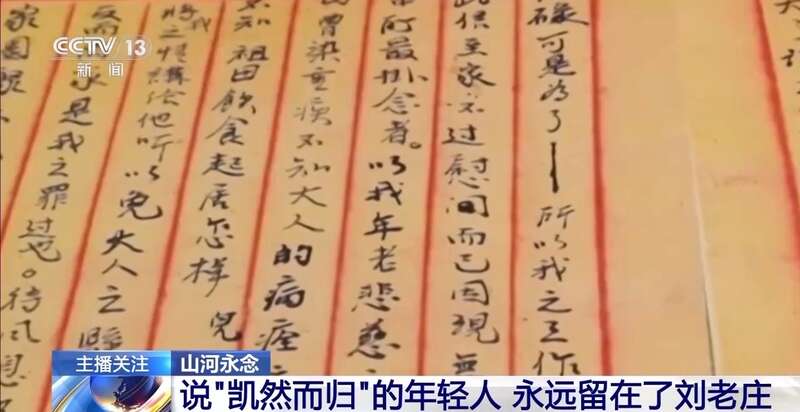 CCTV 13
新闻
碌可是为了——所以我之工作
此信至家不过慰问而已因现無
所最挂念者。以我年老悲慈
曾染重疾不知大人的病痊
知祖田飲食起居怎樣 兒
将我之情講给他听以免大人之
家是我之罪过也。待風息
家園
主播关注
山河永念
说"凯然而归"的年轻人 永远留在了刘老庄